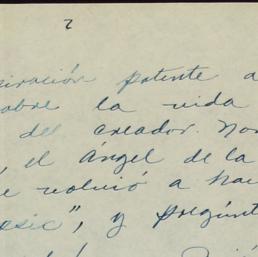 2
piración patente a
sobre la vida
del creador. Nom
, el Ángel de la
e volvió a hac
esic", y pregunt